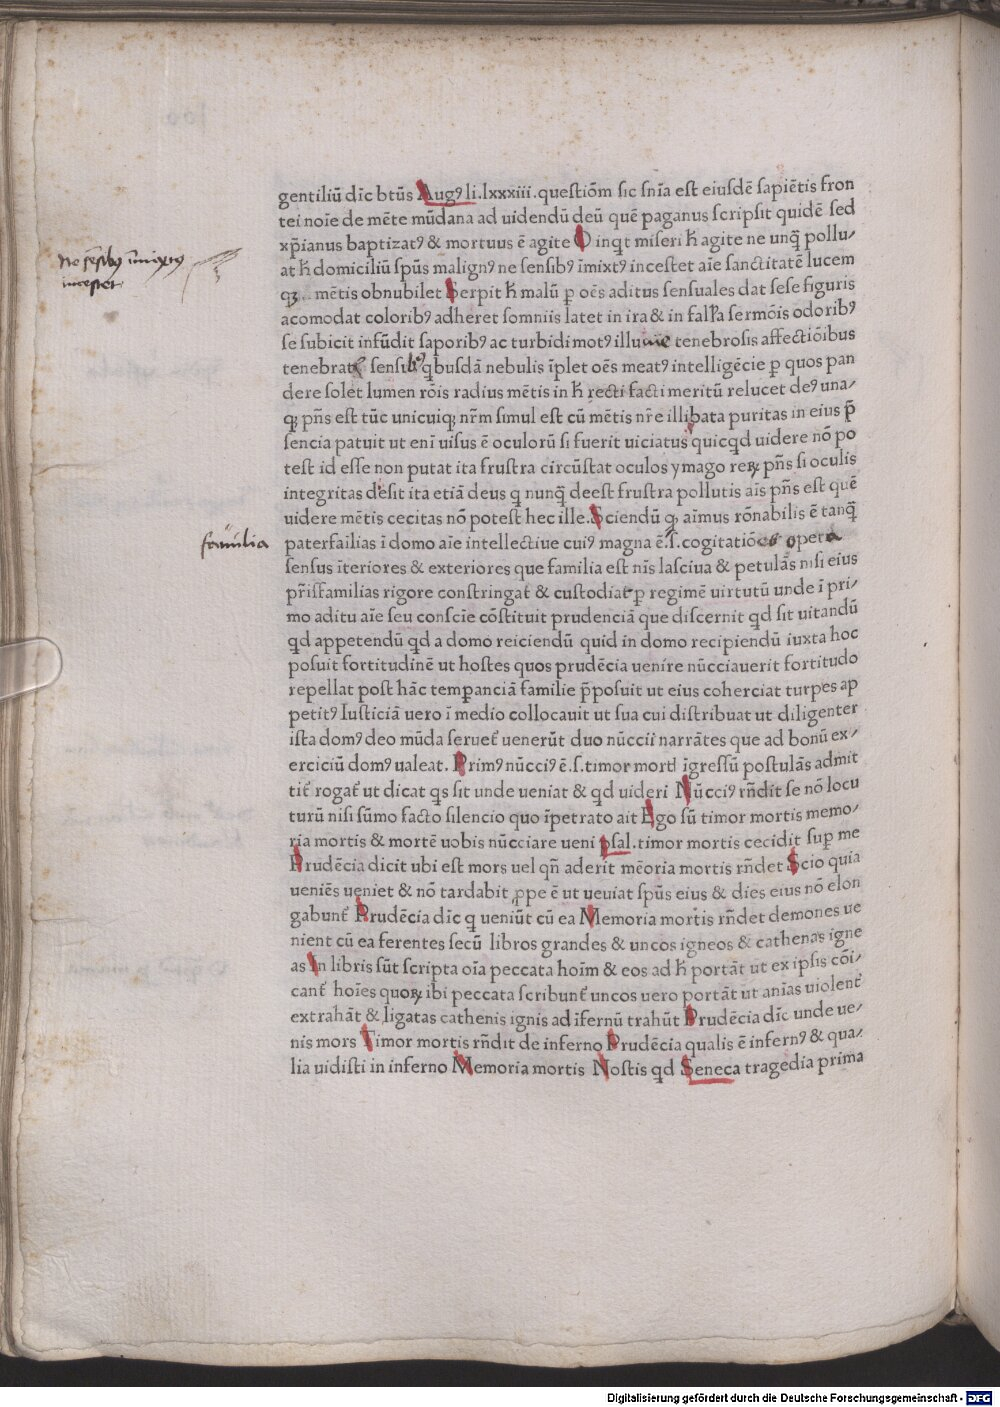 gentiliū dīc btūs Augꝰ li.lxxxiii.questiōm sic snīa est eiusdē sapiētis fron
tei noīe de mēte mūdana ad uidendū deū quē paganus scripsit quidē sed
xp̄ianus baptizatꝰ & mortuus ē agite O inq̄t miseri ħ agite ne unq̄ pollu/
at ħ domiciliū sp̄us malignꝰ ne sensibꝰ īmixtꝰ incestet aīe sanctitatē lucem
Nō sēsibꝰ īmixtꝰ
incestet
qꝫ mētis obnubilet Serpit ħ malū ꝑ oēs aditus sensuales dat sese figuris
acomodat coloribꝰ adheret somniis latet in ira & in falsa sermōis odoribꝰ
se subicit infūdit saporibꝰ ac turbidi motꝰ illumīe tenebrosis affectiōibus
tenebrat sensibꝰ qbusdā nebulis īplet oēs meatꝰ intelligēcie ꝑ quos pan
dere solet lumen rōis radius mētis in ħ recti facti meritū relucet deꝰ una/
qꝫ pn̄s est tūc unicuiqꝫ nr̄m simul est cū mētis nr̄e illibata puritas in eius p̄
sencia patuit ut enī uisus ē oculorū si fuerit uiciatus quicqd uidere nō po
test id esse non putat ita frustra circūstat oculos ymago reꝝ pn̄s si oculis
integritas desit ita etiā deus q nunq̄ deest frustra pollutis aīs pn̄s est quē
uidere mētis cecitas nō potest hec ille. Sciendū ꝙ aīmus rōnabilis ē tanq̄
familia
paterfaīlias ī domo aīe intellectiue cuiꝰ magna ē.s.cogitatiōes opera
sensus īteriores & exteriores que familia est nīs lasciua & petulās nisi eius
pr̄isfamilias rigore constringat̄ & custodiat̄ ꝑ regimē uirtutū unde ī pri/
mo aditu aīe seu conscīe cōstituit prudenciā que discernit qd sit uitandū
qd appetendū qd a domo reiciendū quid in domo recipiendū iuxta hoc
posuit fortitudinē ut hostes quos prudēcia uenire nūcciauerit fortitudo
repellat post hāc temꝑanciā familie p̄posuit ut eius coherciat turpes ap
petitꝰ Iusticiā uero ī medio collocauit ut sua cui distribuat ut diligenter
ista domꝰ deo mūda seruet̄ uenerūt duo nūccii narrātes que ad bonū ex/
erciciū domꝰ ualeat. Primꝰ nūcciꝰ ē.s.timor mortꝭ īgressū postulās admit
tit̄ rogat̄ ut dicat qs sit unde ueniat & qd uideri Nūcciꝰ rn̄dit se nō locu
turū nisi sūmo facto silencio quo īpetrato ait Ego sū timor mortis memo/
ria mortis & mortē uobis nūcciare ueni psal. timor mortis cecidit suꝑ me
Prudēcia dicit ubi est mors uel qn̄ aderit mēoria mortis rn̄det Scio quia
ueniēs ueniet & nō tardabit ꝓpe ē ut ueuiat sp̄us eius & dies eius nō elon
gabunt̄ Prudēcia dīc q ueniūt cū ea Memoria mortis rn̄det demones ue
nient cū ea ferentes secū libros grandes & uncos igneos & cathenas igne
as In libris sūt scripta oīa peccata hoīm & eos ad ħ portāt ut ex ipsis cōi/
cant̄ hoīes quoꝝ ibi peccata scribunt̄ uncos uero portāt ut anīas uiolent̄
extrahāt & ligatas cathenis ignis ad īfernū trahūt Prudēcia dīc unde ue/
nis mors Timor mortis rn̄dit de inferno Prudēcia qualis ē infernꝰ & qua/
lia uidisti in inferno Memoria mortis Nostis qd Seneca tragedia prima
Digitalisierung gefördert durch die Deutsche Forschungsgemeinschaft - DFG